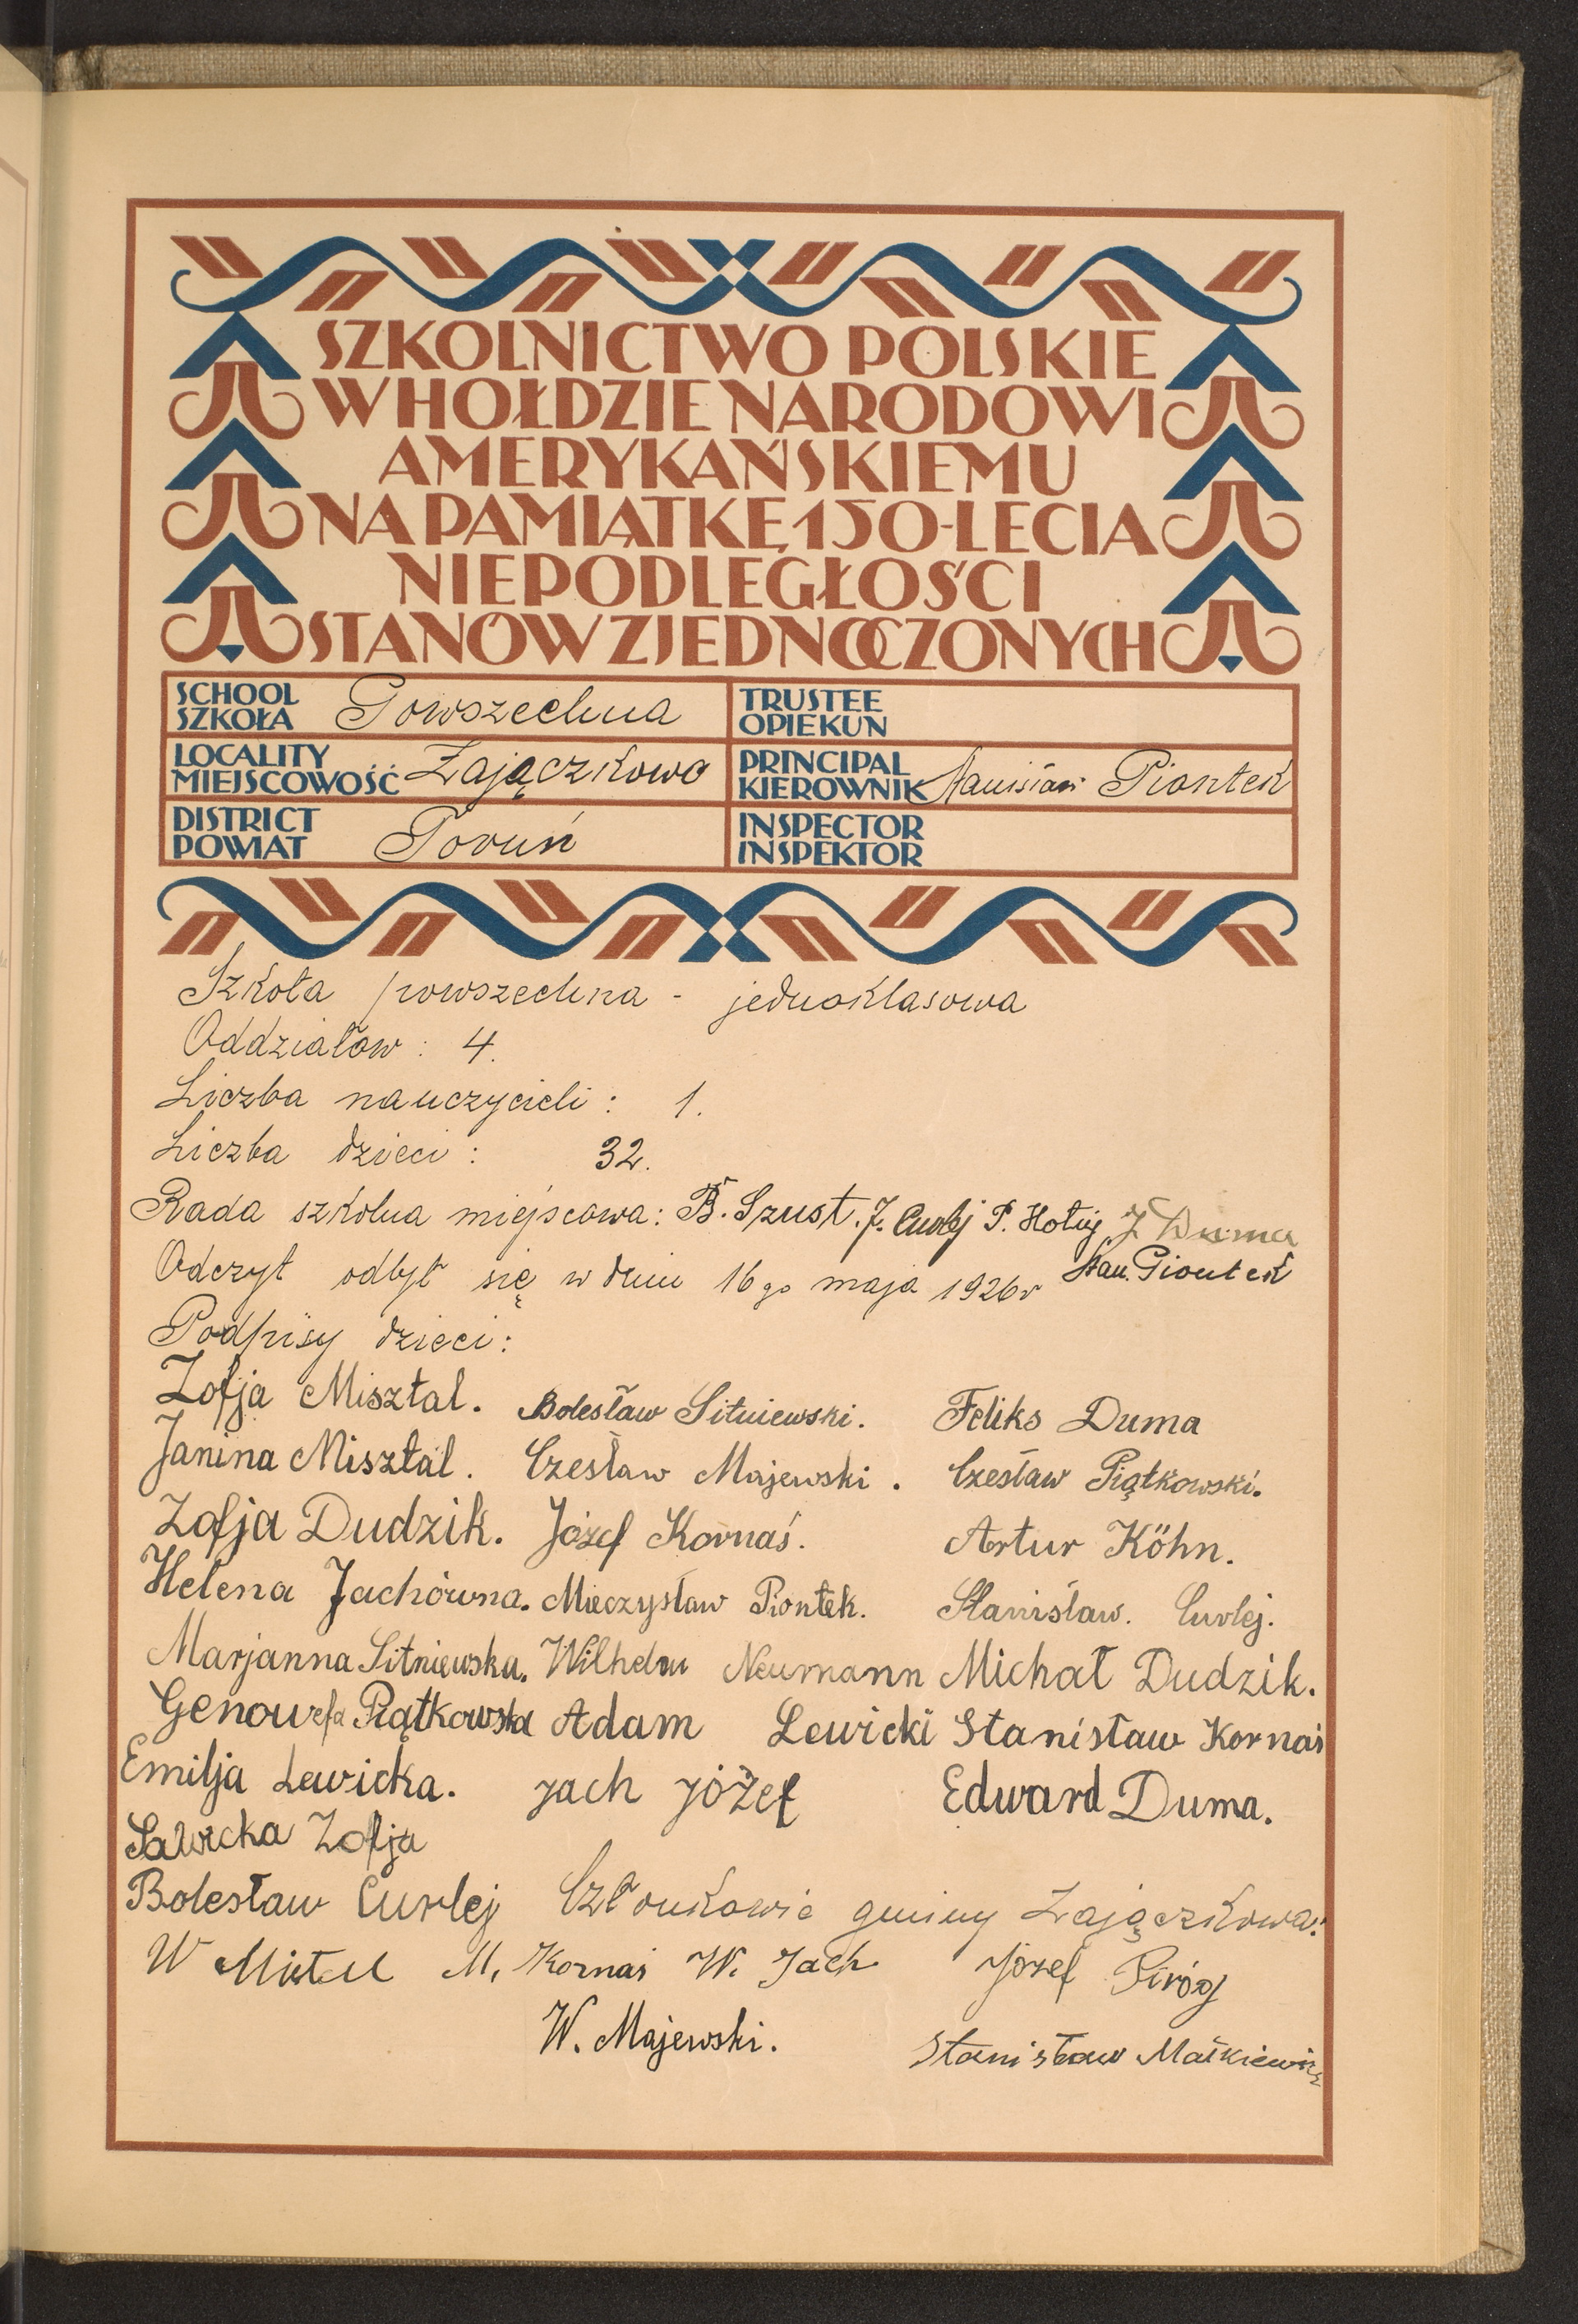 SZKOLNICTWO POLSKIE
W HOŁDZIE NARODOWI
AMERYKAŃSKIEMU
NA PAMIĄTKĘ 150-LECIA
NIEPODLEGŁOŚCI
STANÓW ZJEDNOCZONYCH
SCHOOL
SZKOŁA Powszechna
TRUSTEE
OPIEKUN
LOCALITY
MIEJSCOWOŚĆ Zajączkowo
PRINCIPAL
KIEROWNIK Stanisław Piontek
DISTRICT
POWIAT Toruń
INSPECTOR
INSPEKTOR
Szkoła powszechna - jednoklasowa
Oddziałów : 4.
Liczba nauczycieli : 1.
Liczba dzieci : 32.
Rada szkolna miejscowa: B. Szust. J. Curlej P. J Duma
Stan. Piontek
Odczyt odbył się w dniu 16go maja 1926r
Podpisy dzieci:
Zofja Misztal. Bolesław Sitniewski. Feliks Duma
Janina Misztal. Czesław Majewski. Czesław Piątkowski.
Zofja Dudzik. Józef Kornaś. Artur Köhn.
Helena Jachówna. Mieczysław Piontek. Stanisław. Curlej.
Marjanna Sitniewska. Wilhelm Neumann Michał Dudzik.
Genowefa Piątkowska Adam Lewicki Stanisław Kornaś
Emilja Lewicka. Jach Józef Edward Duma.
Sawicka Zofja
Bolesław Curlej Członkowie gminy Zajączkowa:
W M. Kornaś W. Jach Józef Piróg
W. Majewski. Stanisław Małkiewicz